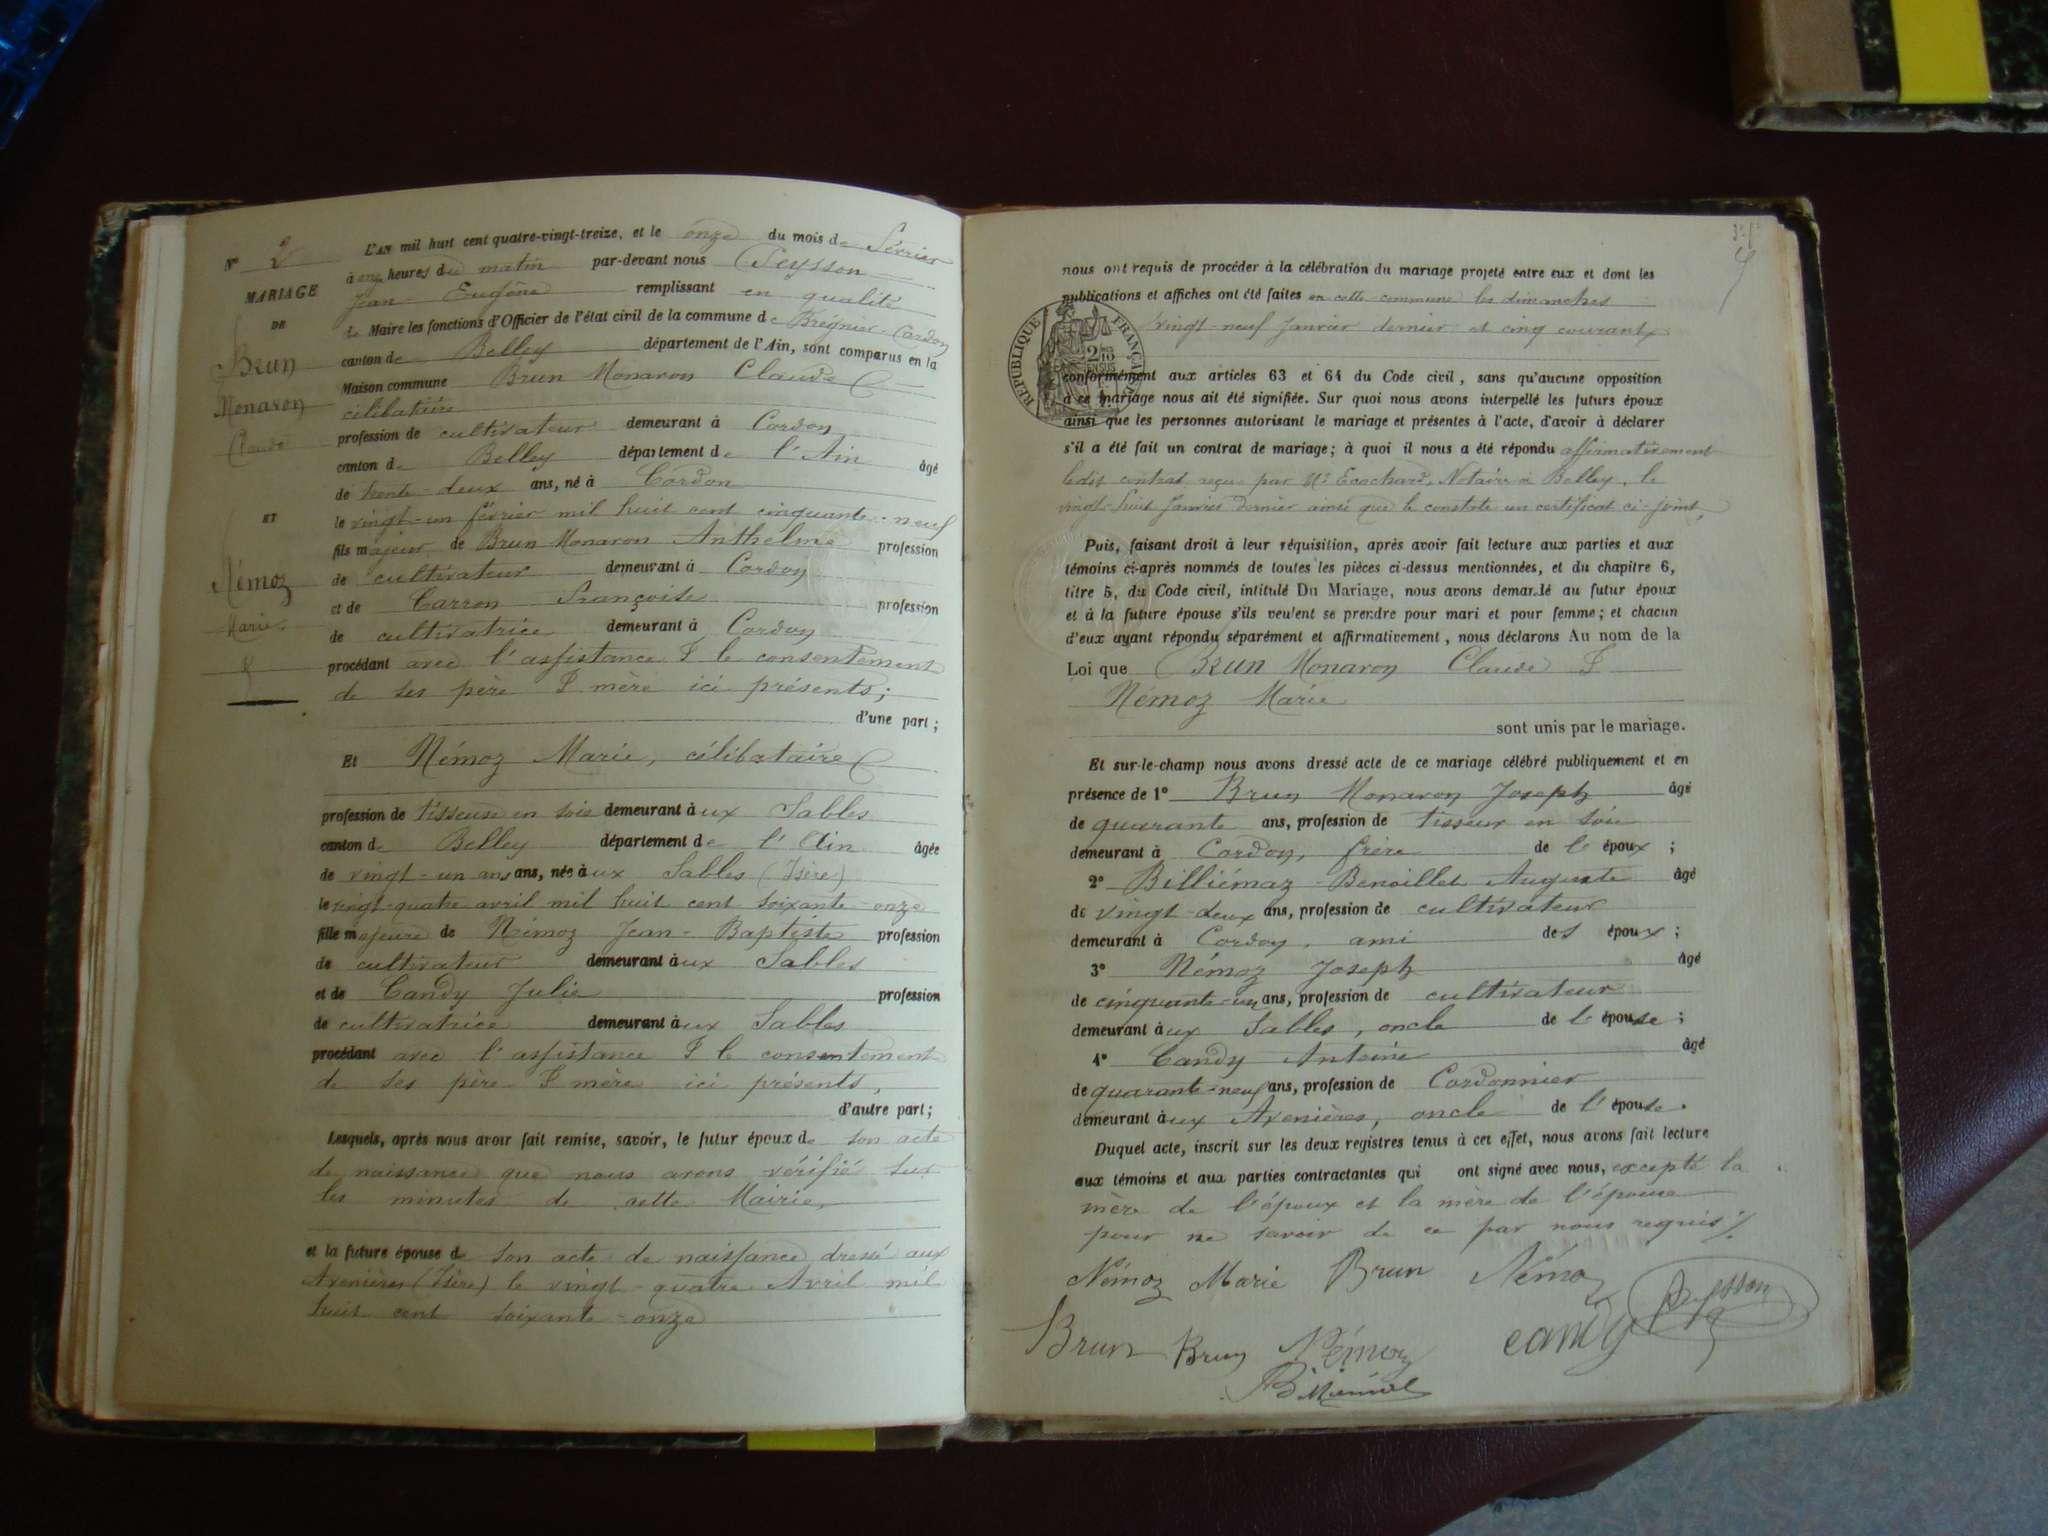 N° 2
MARIAGE
DE
Brun
Monaron
Claude
ET
Némoz
Marie
L'AN mil huit cent quatre-vingt-treize, et le onze du mois de Février
à onze heures du matin par-devant nous Peysson
Jean-Eugène remplissant en qualité
de Maire les fonctions d'Officier de l'état civil de la commune de Brégnier-Cordon
canton de Belley département de l'Ain, sont comparus en la
Maison commune Brun Monaron Claude
célibataire
profession de cultivateur demeurant à Cordon
canton de Belley département de l'Ain âgé
de trente-deux ans, né à Cordon
le vingt-un février mil huit cent cinquante-neuf
fils majeur de Brun Monaron Anthelme profession
de cultivateur demeurant à Cordon
et de Carron Françoise profession
de cultivatrice demeurant à Cordon
procédant avec l'assistance & le consentement
de ses père & mère ici présents;
d'une part;
Et Némoz Marie, célibataire
profession de tisseuse en soie demeurant aux Sables
canton de Belley département de l'Ain âgée
de vingt-un ans ans, née aux Sables (Isère)
le vingt-quatre avril mil huit cent soixante-onze
fille majeure de Némoz Jean-Baptiste profession
de cultivateur demeurant aux Sables
et de Candy Julie profession
de cultivatrice demeurant aux Sables
procédant avec l'assistance & le consentement
de ses père & mère ici présents,
d'autre part;
Lesquels, après nous avoir fait remise, savoir, le futur époux de son acte
de naissance que nous avons vérifié sur
les minutes de cette Mairie,
et la future épouse de son acte de naissance dressé aux
Avenières (Isère) le vingt-quatre Avril mil
huit cent soixante-onze
nous ont requis de procéder à la célébration du mariage projeté entre eux et dont les
publications et affiches ont été faites en cette commune les dimanches
vingt-neuf Janvier dernier et cinq courant,
RÉPUBLIQUE FRANÇAISE
conformément aux articles 63 et 64 du Code civil, sans qu'aucune opposition
à ce mariage nous ait été signifiée. Sur quoi nous avons interpellé les futurs époux
ainsi que les personnes autorisant le mariage et présentes à l'acte, d'avoir à déclarer
s'il a été fait un contrat de mariage; à quoi il nous a été répondu affirmativement
ledit contrat reçu par Me Ecochard, Notaire à Belley, le
vingt-huit Janvier dernier ainsi que le constate un certificat ci-joint,
Puis, faisant droit à leur réquisition, après avoir fait lecture aux parties et aux
témoins ci-après nommés de toutes les pièces ci-dessus mentionnées, et du chapitre 6,
titre 5, du Code civil, intitulé Du Mariage, nous avons demandé au futur époux
et à la future épouse s'ils veulent se prendre pour mari et pour femme; et chacun
d'eux ayant répondu séparément et affirmativement, nous déclarons Au nom de la
Loi que Brun Monaron Claude &
Némoz Marie
sont unis par le mariage.
Et sur-le-champ nous avons dressé acte de ce mariage célébré publiquement et en
présence de 1° Brun Monaron Joseph âgé
de quarante ans, profession de tisseur en soie
demeurant à Cordon, frère de l'époux;
2° Billiémaz-Benoillet Auguste âgé
de vingt-deux ans, profession de cultivateur
demeurant à Cordon, ami des époux;
3° Némoz Joseph âgé
de cinquante-un ans, profession de cultivateur
demeurant aux Sables, oncle de l'épouse;
4° Candy Antoine âgé
de quarante-neuf ans, profession de Cordonnier
demeurant aux Avenières, oncle de l'épouse.
Duquel acte, inscrit sur les deux registres tenus à cet effet, nous avons fait lecture
aux témoins et aux parties contractantes qui ont signé avec nous, excepté la
mère de l'époux et la mère de l'épouse
pour ne savoir de ce par nous requis
Némoz Marie Brun Némoz Peysson
Brun Brun Némoz candy